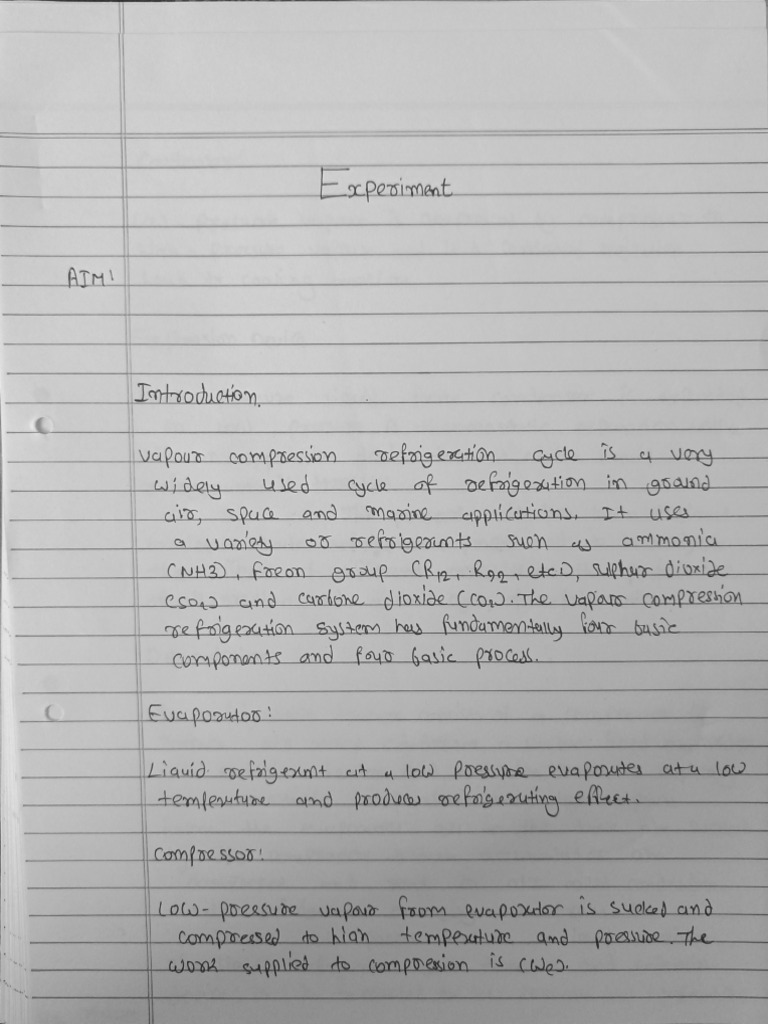 Experiment
AIM:
Introduction.
Vapour compression refrigeration cycle is a very
widely used cycle of refrigeration in ground
air, space and marine applications. It uses
a variety or refrigerants such as ammonia
(NH3), freon group (R12, R22, etc.), sulphur dioxide
(SO2) and carbone dioxide (CO2). The vapour compression
refrigeration system has fundamentally four basic
components and four basic process.
Evaporator:
Liquid refrigerant at a low pressure evaporates at a low
temperature and produces refrigerating effect.
Compressor:
Low-pressure vapour from evaporator is sucked and
compressed to high temperature and pressure. The
work supplied to compression is (Wc).